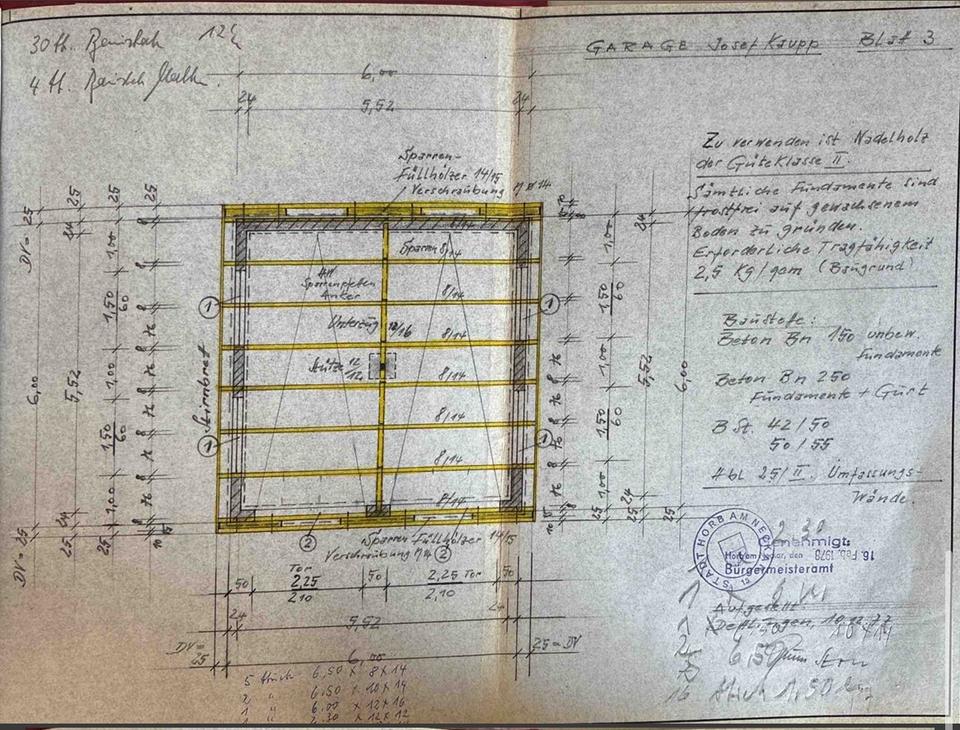 GARAGE Josef Kaupp Blat 3
12
30
4
6,00
24 24
5,52
Sparren-
Füllhölzer 14/15
Verschraubung M 14
Zu verwenden ist Nadelholz
der Güteklasse II.
Sämtliche Fundamente sind
frostfrei auf gewachsenem
Boden zu gründen.
Erforderliche Tragfähigkeit
2,5 Kg/qcm (Baugrund)
Baustofe:
Beton Bn 150 unbew.
Fundamente
Beton Bn 250
Fundamente + Gurt
B St. 42/50
50/55
Hbl 25/II. Umfassungs-
Wände.
DV = 25
25
24
25
25
1,00
1,50
60
1,00
1,50
60
1,00
5,52
6,00
24
25
DV = 25
Stirnbret
Sparren 8/14
Sparrenpfetten
Anker
8/14
1
1
Unterzug 12/16
8/14
Stütze 12/12
8/14
8/14
1
1
8/14
8/14
1,00
1,50
60
1,00
1,50
60
1,00
24
5,52
6,00
25
25
25
2
Sparren Füllhölzer 14/15
Verschraubung M 14
2
50
Tor
2,25
2,10
50
2,25 Tor
2,10
50
24
5,52
24
DV =
25
25 = DV
6,00
5 Stück 6,50 x 8 x 14
2 " 6,50 x 10 x 14
1 " 6,00 x 12 x 16
1 " 2,30 x 12 x 12
STADT HORB AM NECKAR
Genehmigt:
Horb am Neckar, den 16. Feb. 1978
Bürgermeisteramt
Aufgestellt
Dettlingen, 10.12.77
16 Stück 1,50 lang